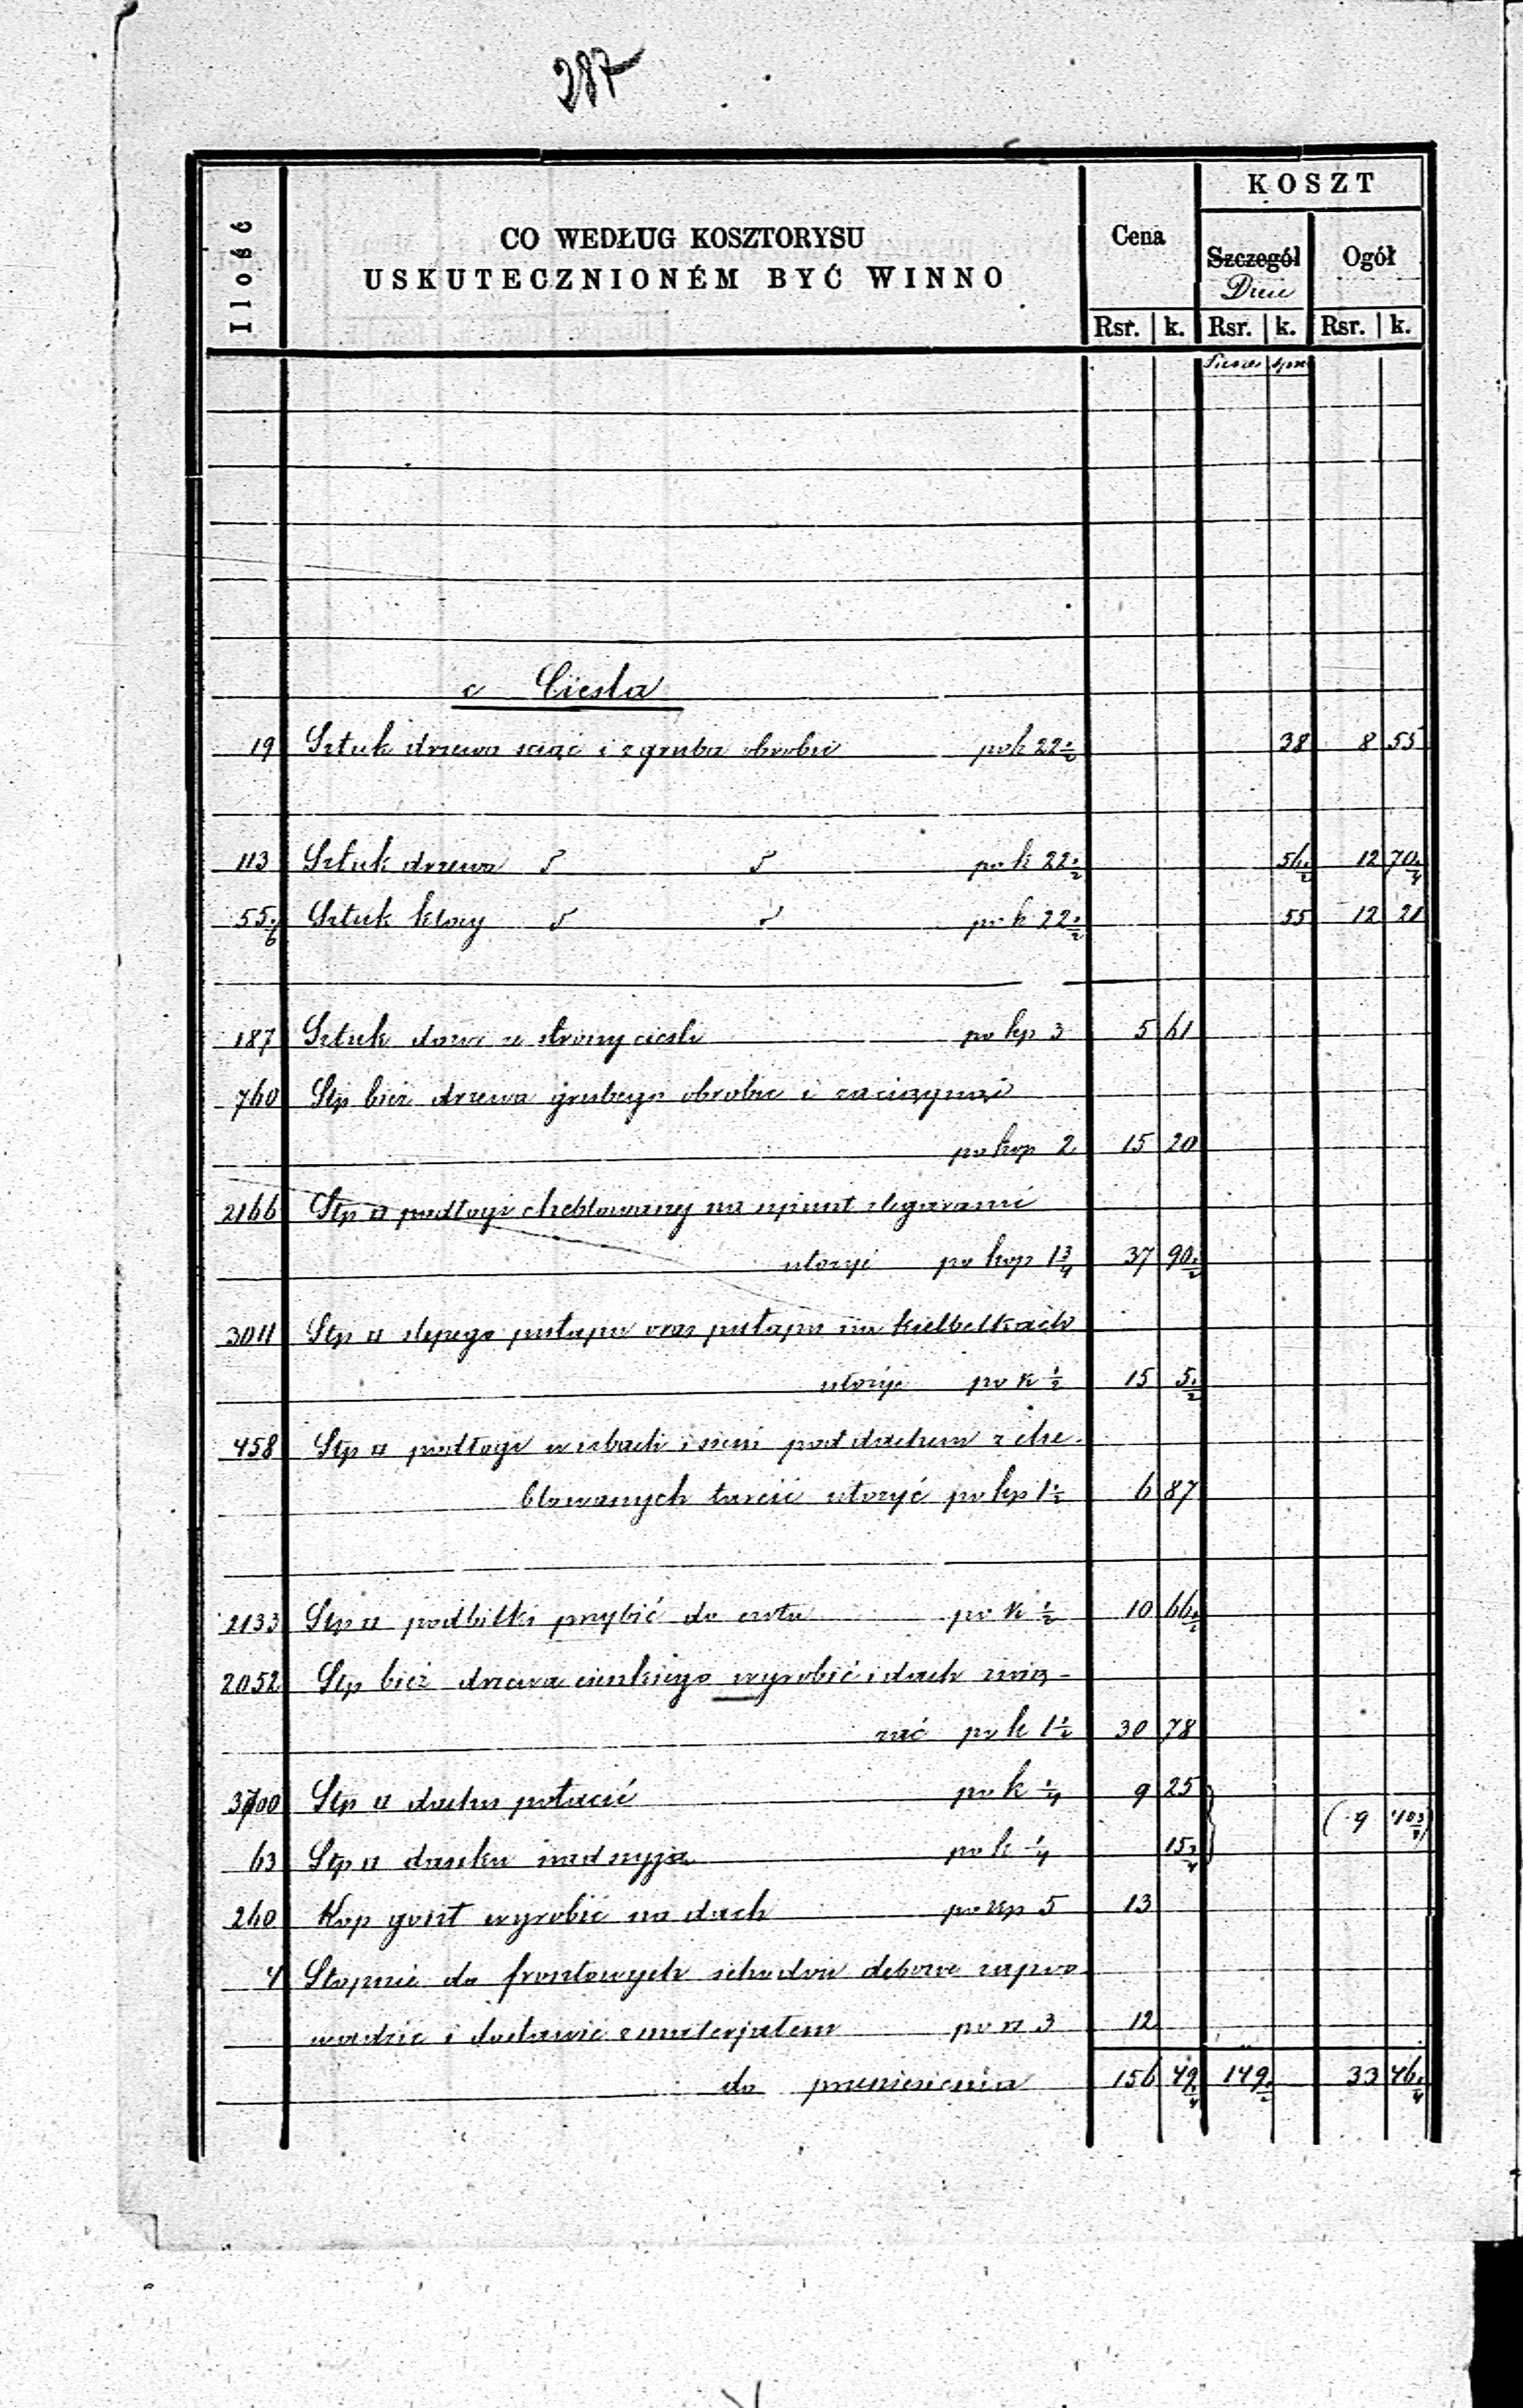 287
Ilość
CO WEDŁUG KOSZTORYSU
USKUTECZNIONÉM BYĆ WINNO
Cena
KOSZT
Szczegół
Ogół
Rsr. k. Rsr. k. Rsr. k.
c Ciesla
19 Sztuk drzewa sciąć i zgruba obrobić po k 22½ 38 8 55
113 Sztuk drzewa po k 22½ 12 70
Sztuk klocy po k 22½ 55 12 21
187 Sztuk po kp 3 5 61
760 Stp bież drzewa grubego obrobić i zaciągnąć
po kop 2 15 20
2166 Stp □ podłogi cheblowanej na szpunt z legarami
ułożyć po kop 1¾ 37 90½
3011 Stp □ slepego pułapu oraz pułapu na
ułożyć po k ½ 15 5½
458 Stp □ podłogi w izbach i sieni pod dachem z che-
blowanych tarcic ułożyć po kp 1½ 6 87
2133 Stp □ podbitki przybić do po k ½ 10 66½
2052 Stp bież drzewa cienkiego wyrobić i dach zwią-
zać po k 1½ 30 78
3700 Stp □ dachu połacić po k ¼ 9 25
(9 40¾)
63 Stp □ daszku nad po k ¼ 15¾
260 Kop gont wyrobić na dach po kp 5 13
4 Stopnie do frontowych schodów debowe zapro
wadzić i dostawić z materjałem po rs 3 12
do przeniesienia 156 49¼ 149½ 33 46¼